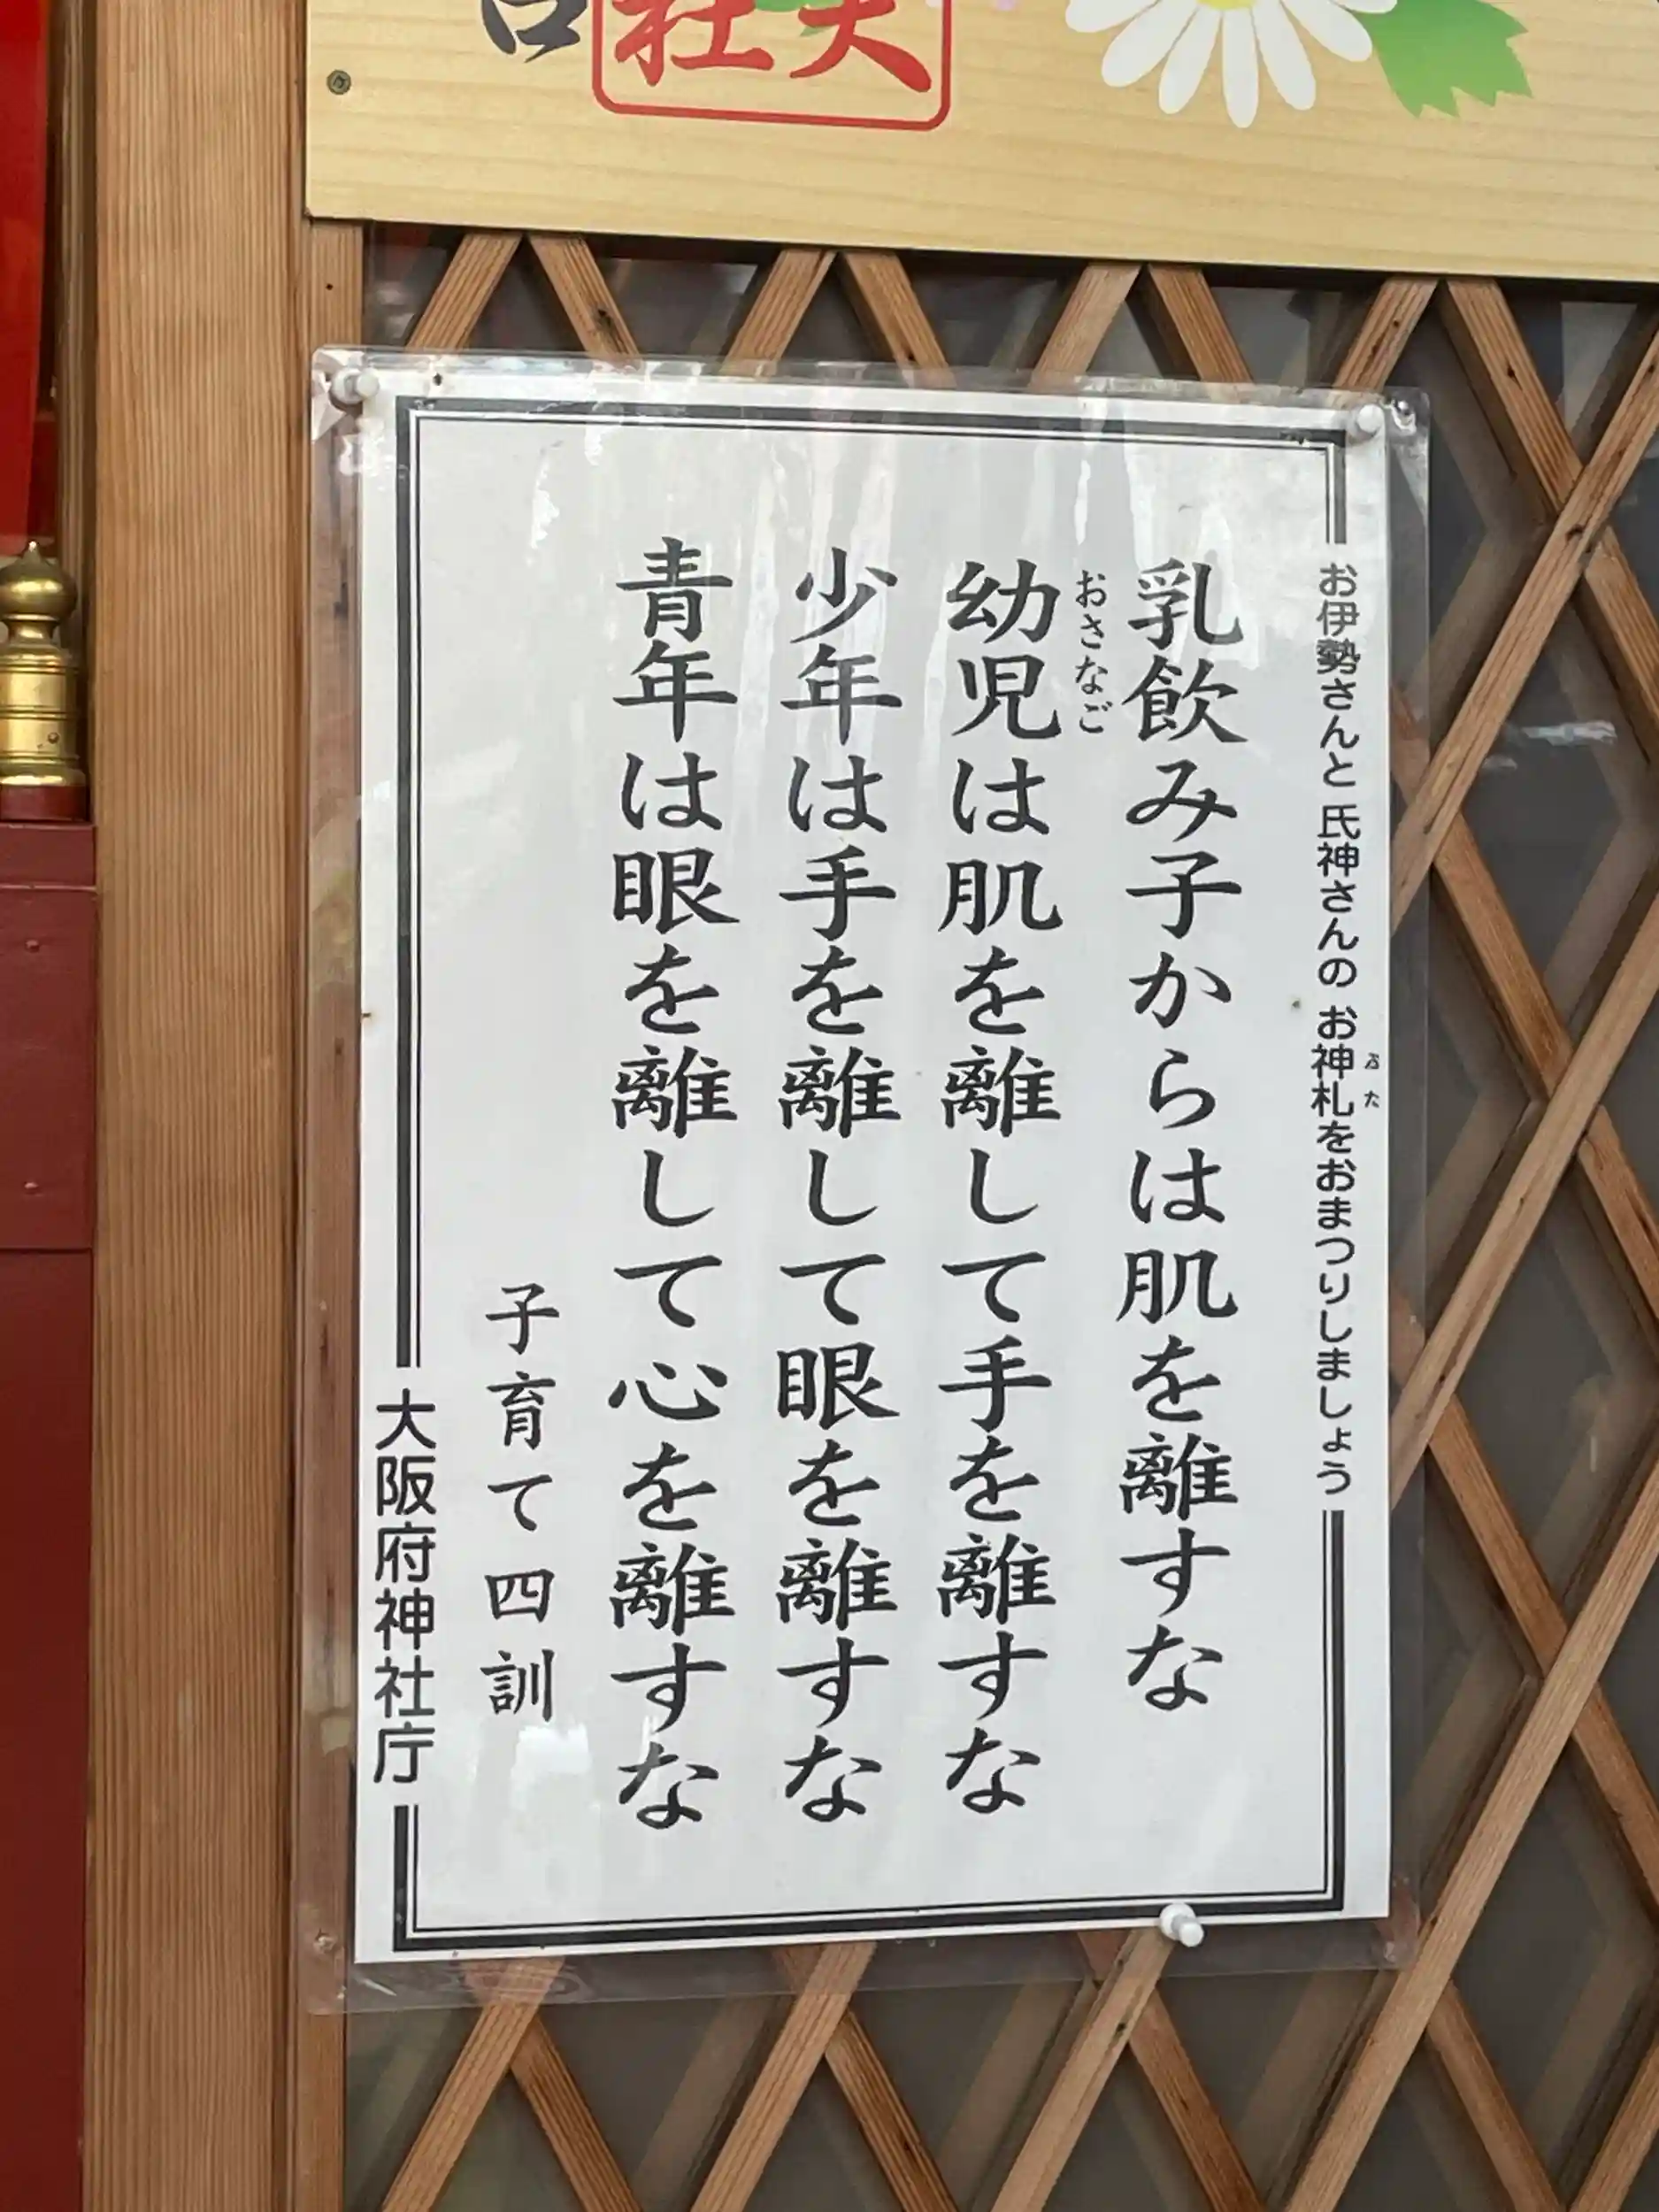 お伊勢さんと 氏神さんの お神札をおまつりしましょう
ふだ
乳飲み子からは肌を離すな
おさなご
幼児は肌を離して手を離すな
少年は手を離して眼を離すな
青年は眼を離して心を離すな
子育て四訓
大阪府神社庁